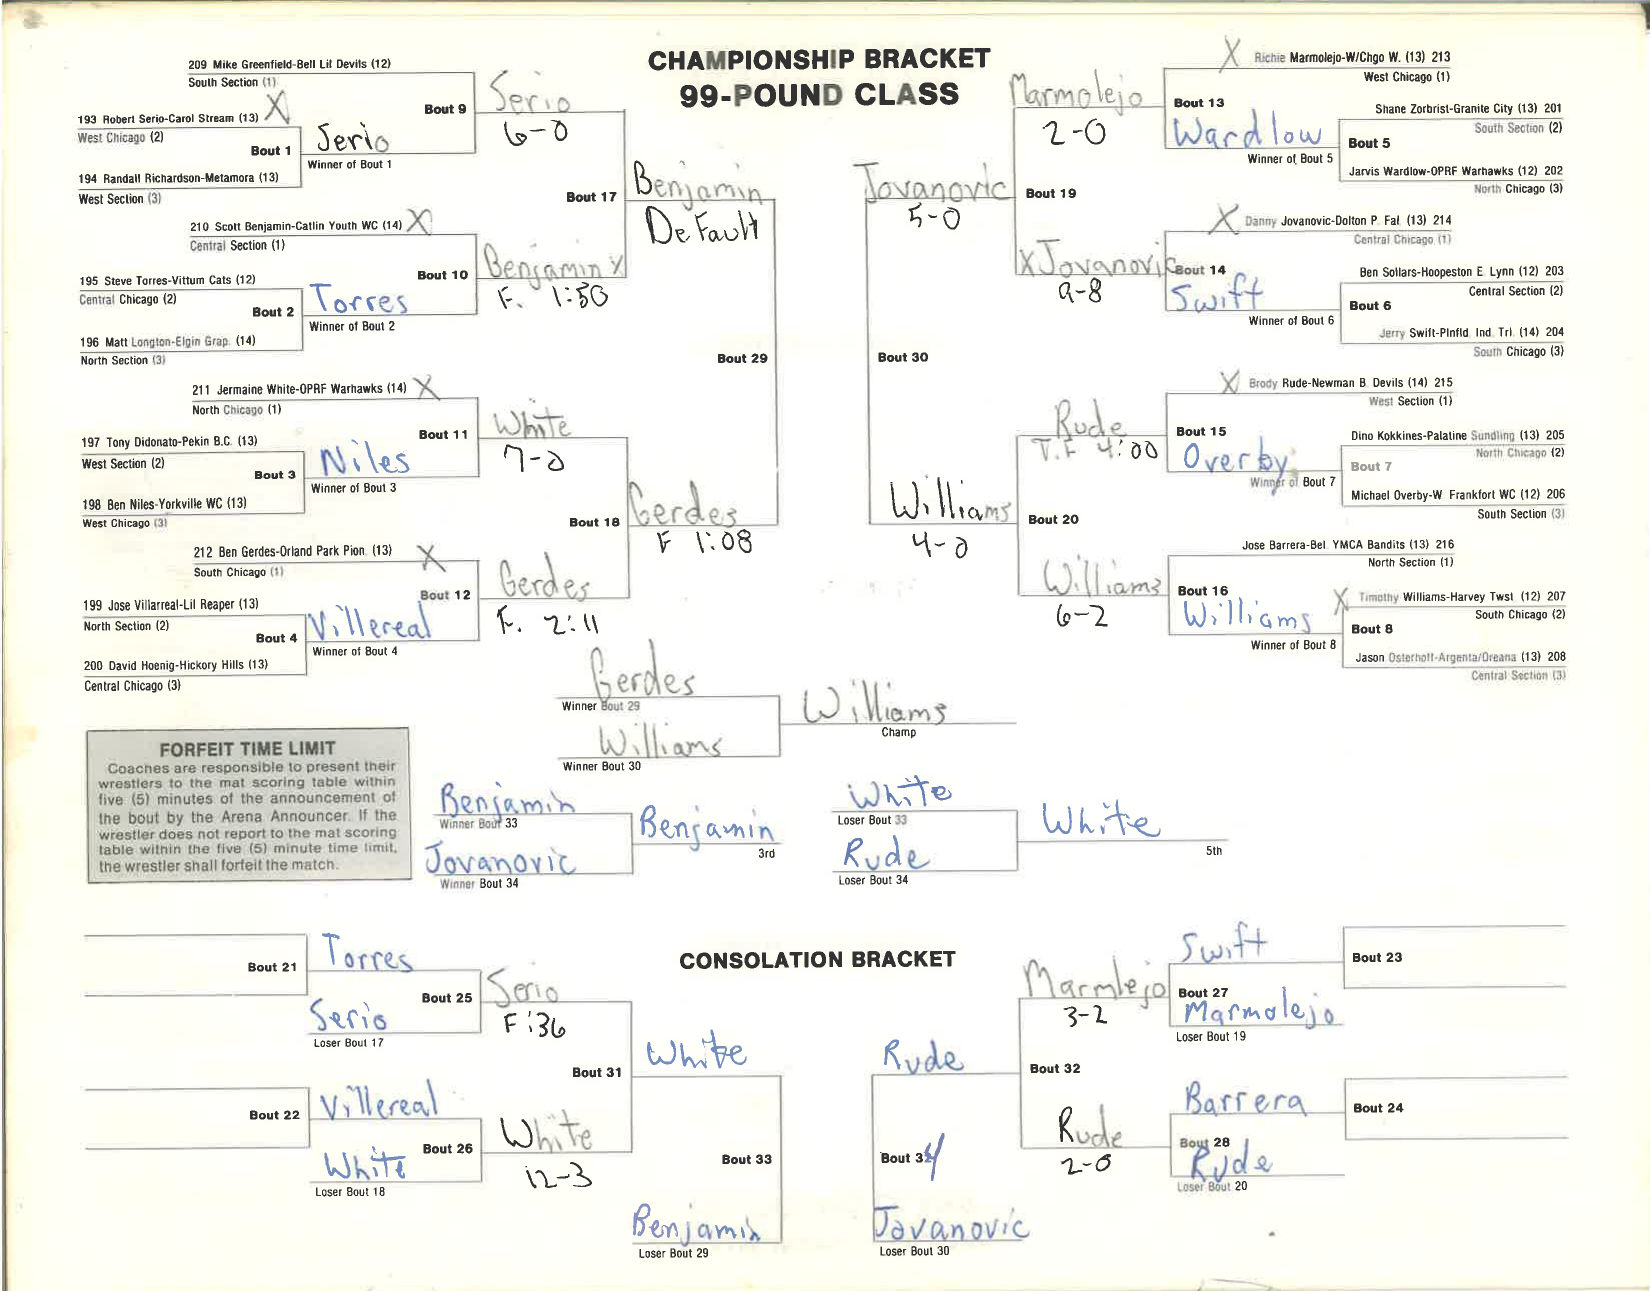 CHAMPIONSHIP BRACKET
99-POUND CLASS
209 Mike Greenfield-Bell Lil Devils (12)
South Section (1)
193 Robert Serio-Carol Stream (13) X
West Chicago (2)
Bout 1
194 Randall Richardson-Metamora (13)
West Section (3)
Serio
Winner of Bout 1
Bout 9
Serio
6-0
210 Scott Benjamin-Catlin Youth WC (14) X
Central Section (1)
195 Steve Torres-Vittum Cats (12)
Central Chicago (2)
Bout 2
196 Matt Longton-Elgin Grap. (14)
North Section (3)
Torres
Winner of Bout 2
Bout 10
Benjamin X
F. 1:50
Bout 17
Benjamin
Default
211 Jermaine White-OPRF Warhawks (14) X
North Chicago (1)
197 Tony Didonato-Pekin B.C. (13)
West Section (2)
Bout 3
198 Ben Niles-Yorkville WC (13)
West Chicago (3)
Niles
Winner of Bout 3
Bout 11
White
7-0
212 Ben Gerdes-Orland Park Pion. (13) X
South Chicago (1)
199 Jose Villarreal-Lil Reaper (13)
North Section (2)
Bout 4
200 David Hoenig-Hickory Hills (13)
Central Chicago (3)
Villereal
Winner of Bout 4
Bout 12
Gerdes
F. 2:11
Bout 18
Gerdes
F 1:08
Bout 29
X Richie Marmolejo-W/Chgo W. (13) 213
West Chicago (1)
Shane Zorbrist-Granite City (13) 201
South Section (2)
Bout 5
Jarvis Wardlow-OPRF Warhawks (12) 202
North Chicago (3)
Bout 13
Wardlow
Winner of Bout 5
Marmolejo
2-0
X Danny Jovanovic-Dolton P. Fal. (13) 214
Central Chicago (1)
Ben Sollars-Hoopeston E. Lynn (12) 203
Central Section (2)
Bout 6
Jerry Swift-Plnfld. Ind. Trl. (14) 204
South Chicago (3)
Bout 14
Swift
Winner of Bout 6
X Jovanovic
9-8
Bout 19
Jovanovic
5-0
X Brody Rude-Newman B. Devils (14) 215
West Section (1)
Dino Kokkines-Palatine Sundling (13) 205
North Chicago (2)
Bout 7
Michael Overby-W. Frankfort WC (12) 206
South Section (3)
Bout 15
Overby
Winner of Bout 7
Rude
T.F 4:00
Jose Barrera-Bel. YMCA Bandits (13) 216
North Section (1)
X Timothy Williams-Harvey Twst. (12) 207
South Chicago (2)
Bout 8
Jason Osterhoff-Argenta/Oreana (13) 208
Central Section (3)
Bout 16
Williams
Winner of Bout 8
Williams
6-2
Bout 20
Williams
4-0
Bout 30
Gerdes
Winner Bout 29
Williams
Winner Bout 30
Williams
Champ
FORFEIT TIME LIMIT
Coaches are responsible to present their
wrestlers to the mat scoring table within
five (5) minutes of the announcement of
the bout by the Arena Announcer. If the
wrestler does not report to the mat scoring
table within the five (5) minute time limit,
the wrestler shall forfeit the match.
Benjamin
Winner Bout 33
Jovanovic
Winner Bout 34
Benjamin
3rd
White
Loser Bout 33
Rude
Loser Bout 34
White
5th
CONSOLATION BRACKET
Bout 21
Torres
Bout 25
Serio
Loser Bout 17
Serio
F :36
Bout 22
Villereal
Bout 26
White
Loser Bout 18
White
12-3
Bout 31
White
Bout 33
Benjamin
Loser Bout 29
Bout 23
Swift
Bout 27
Marmolejo
Loser Bout 19
Marmlejo
3-2
Bout 24
Barrera
Bout 28
Rude
Loser Bout 20
Rude
2-0
Bout 32
Rude
Bout 34
Jovanovic
Loser Bout 30